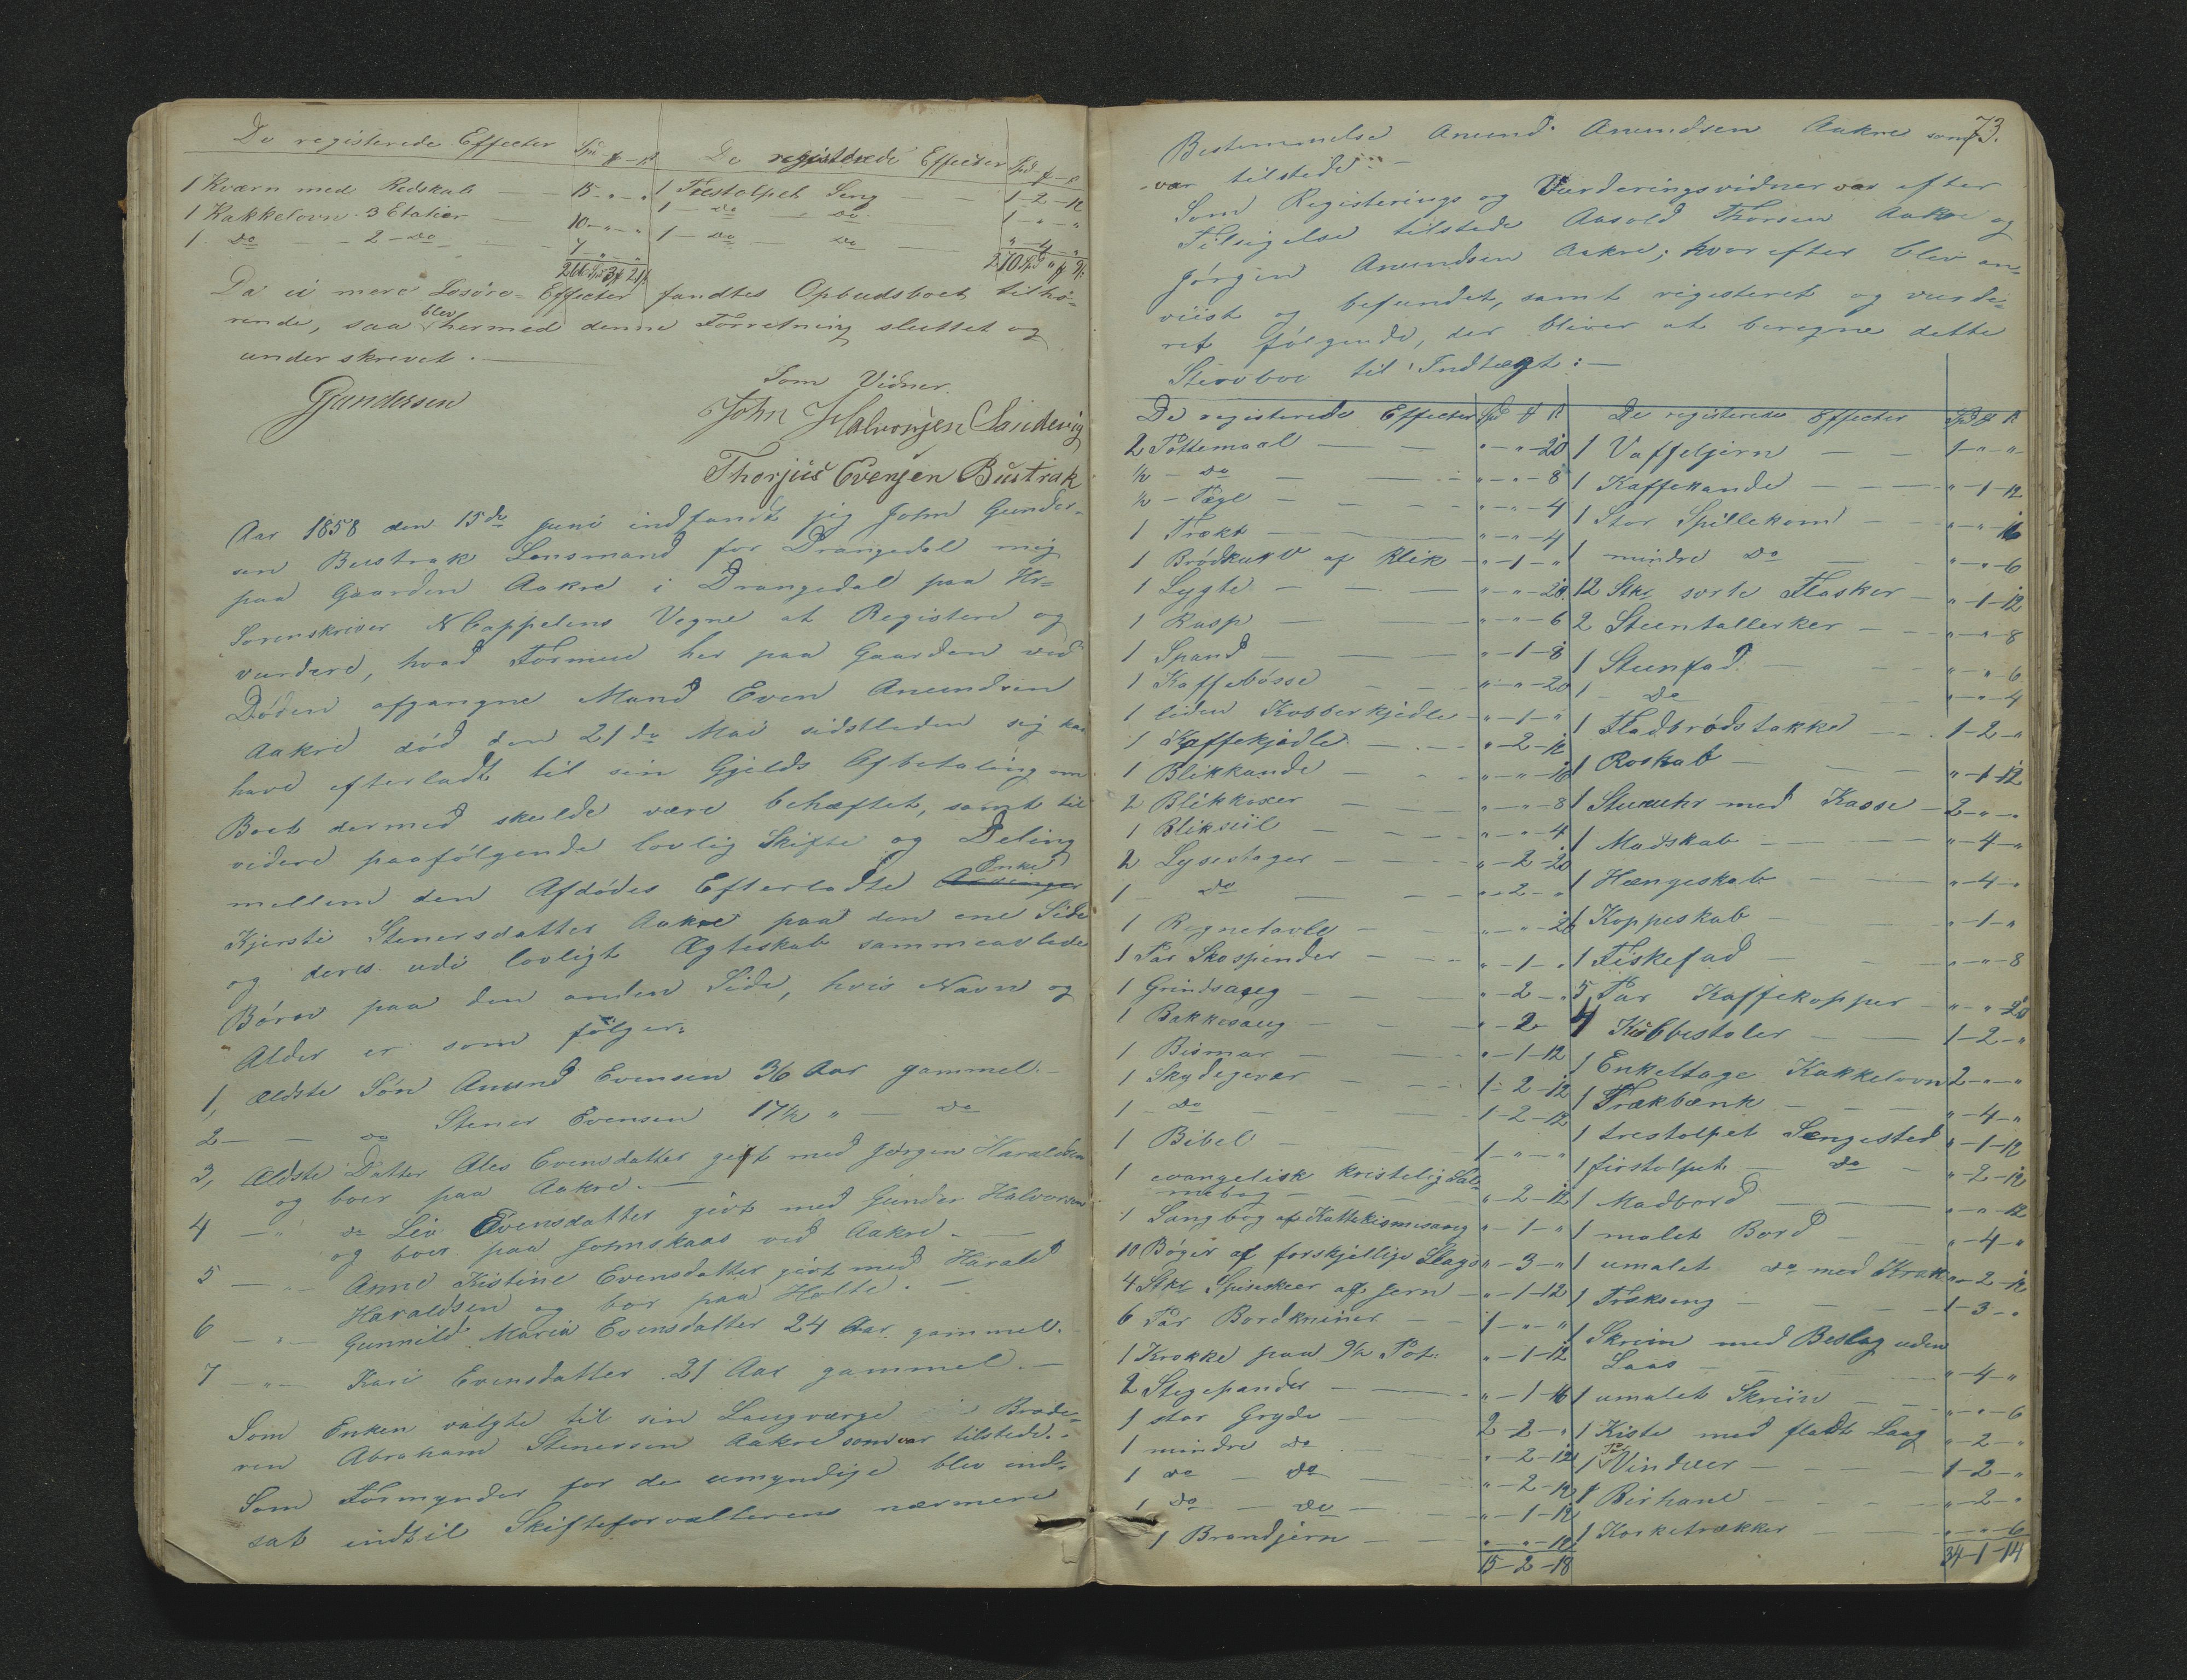 De registerede Effecter Spd - # - ß De registerede Effecter Spd - # - ß
1 Kværn med Redskab — 15 - " - "
1 Kakkelovn 3 Etatier — 10 - " - "
1 do - 2 - do — 7 " "
216 Spd 3 # 21 ß
1 Toestolpet Seng — 1-2-12
1 - do - do 1 - " - "
1 - do - do — " - 4 - "
210 Spd " # 9 ß
Da ei mere Losøre-Effecter fandtes Opbudsboet tilhø-
rende, saa blev hermed denne Forretning sluttet og
underskrevet. —
Gundersen
Som Vidner
John Halvorsen Sandevig
Thorjus Evensen Bustrak
Aar 1858 den 15de Juni indfandt jeg John Gunder-
sen Bustrak Lensmand for Drangedal mig
paa Gaarden Aakre i Drangedal paa Hr=
Sorenskriver N Cappelens Vegne at Registere og
vurdere, hvad Formue her paa Gaarden ved
Døden afgangne Mand Even Anundsen
Aakre død den 21de Mai sidstleden sig kan
have efterladt til sin Gjelds Afbetaling om
Boet dermed skulde være behæftet, samt til
videre paafølgende lovlig Skifte og Deling
mellem den Afdødes Efterladte Arvinger Enke
Kjersti Stenersdatter Aakre paa den ene Side
og deres udi lovligt Ægteskab sammeavlede
Børn paa den anden Side, hvis Navn og
Alder er som følger:
1, Ældste Søn Anund Evensen 36 Aar gammel. —
2 — — do Stener Evensen 17½ " — do
3, Ældste Datter Ales Evensdatter gift med Jørgen Haraldsen
og boer paa Aakre. —
4 — " do Liv Evensdatter givt med Gunder Halvorsen
og boer paa Johnskaas ved Aakre. —
5 — " — Anne Kistine Evensdatter givt med Harald
Haraldsen og bor paa Holte. —
6 — " — Gunnild Maria Evensdatter 24 Aar gammel.
7 — " — Kari Evensdatter 21 Aar gammel. —
Som Enken valgte til sin Laugværge Brode-
ren Abraham Stenersen Aakre som var tilstede. -
Som Formynder for de umyndige blev ind-
sat indtil Skifteforvalterens nærmere
73.
Bestemmelse Anund Anundsen Aakre som
var tilstede. —
Som Registerings og Vurderingsvidner var efter
Tilsigelse tilstede Aasold Thorsen Aakre og
Jørgen Anundsen Aakre; hvorefter blev an-
viist og befundet, samt registeret og vurde-
ret følgende, der bliver at beregne dette
Stervboe til Indtægt: —
De registerede Effecter Spd # ß
2 Pottemaal — " - " - 20
½ - do — " - " - 8
½ - Pægl — " - " - 4
1 Trækt — " - " - 4
1 Brødkurv af Blik — " - 1 - "
1 Lygte — " - " - 20
1 Rasp — " - " - 6
1 Spand — " - 1 - 8
1 Kaffebøsse — " - " - 20
1 liden Kobberkjedle — " - 1 - "
1 Kaffekjedle — " - 2 - 12
1 Blikkande — " - " - 18
2 Blikkoxer — " - " - 8
1 Bliksiil — " - " - 4
2 Lysestager — " - 2 - 20
1 - do — " - 2 - "
1 Regnetavle — " - " - 20
1 Par Skospænder — " - 1 - "
1 Grindsaug — " - 2 - "
1 Bakkesaug — " - 2 - "
1 Bismar — " - 1 - 12
1 Skydegevær — 1 - 2 - 12
1 - do — 1 - 2 - 12
1 Bibel — 1 - " - "
1 evangelisk kristelig Sal-
mebog — " - 2 - 12
1 Sangbog af Kattekismisang " - 1 - "
10 Bøger af forskjellige Slags " - 3 - "
4 Stkr Spiseskeer af Jern — " - 1 - 12
6 Par Bordkniver — 1 - " - "
1 Krokke paa 9/2 Pot " - 1 - 12
2 Stegepander — " - 1 - 16
1 stor Gryde — 2 - 2 - "
1 mindre do " - 2 - 12
1 do - do — " - 2 - 12
1 do - do — " - 1 - 12
1 Brandjern — " - " - 12
15 - 2 - 18
De registerede Effecter Spd # ß
1 Vaffeljern — 1 - " - "
1 Kaffekande — " - 1 - 12
1 Stor Spillekom — " - " - 16
1 mindre do — " - " - 6
12 Stkr sorte Flasker — " - 1 - 12
2 Steentallerker — " - " - 8
1 Steenfad — " - " - 6
1 - do " - " - 4
1 Fladbrødstakke — 1 - 2 - "
1 Roskab — " - 1 - 12
1 Stueuhr med Kasse — 2 - " - "
1 Madskab — " - 4 - "
1 Hængeskab — " - 4 - "
1 Koppeskab — " - 1 - "
1 Fiskefad — " - " - 8
5 Par Kaffekopper — " - " - 20
4 Kubbestoler — 1 - 2 - "
1 Enkeltage Kakkelovn 2 - " - "
1 Trækbænk — " - 4 - "
1 trestolpet Sengested " - 1 - 12
1 firstolpet — do — " - 2 - 12
1 Madbord — " - " - 12
1 malet Bord — " - 4 - "
1 umalet do med Krak " - 2 - 12
1 Trækseng — 1 - 3 - "
1 Skriin med Beslag uden
Laas — " - 4 - "
1 umalet Skriin — " - " - 6
1 Kiste med fladt Laag " - 2 - "
1 Par Vinduer — 1 - 2 - "
1 Birhane — " - 2 - "
1 Korketrækker " - " - 6
34 - 1 - 14